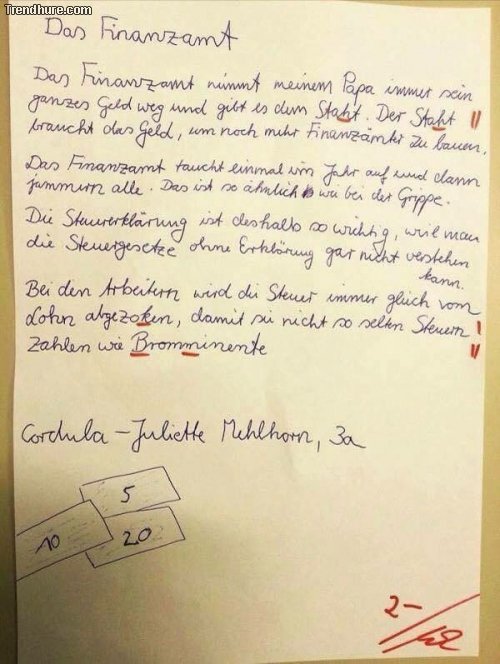 Trendhure.com
Das Finanzamt
Das Finanzamt nimmt meinem Papa immer sein
ganzes Geld weg und gibt es dem Staht. Der Staht
braucht das Geld, um noch mehr Finanzämter zu bauen.
Das Finanzamt taucht einmal im Jahr auf und dann
jammern alle. Das ist so ähnlich wie bei der Grippe.
Die Steuererklärung ist deshalb so wichtig, weil man
die Steuergesetze ohne Erklärung gar nicht verstehen
kann.
Bei den Arbeitern wird die Steuer immer gleich vom
Lohn abgezoken, damit sie nicht so selten Steuern
Zahlen wie Bromminente
Cordula-Juliette Mehlhorn, 3a
5
10
20
2-